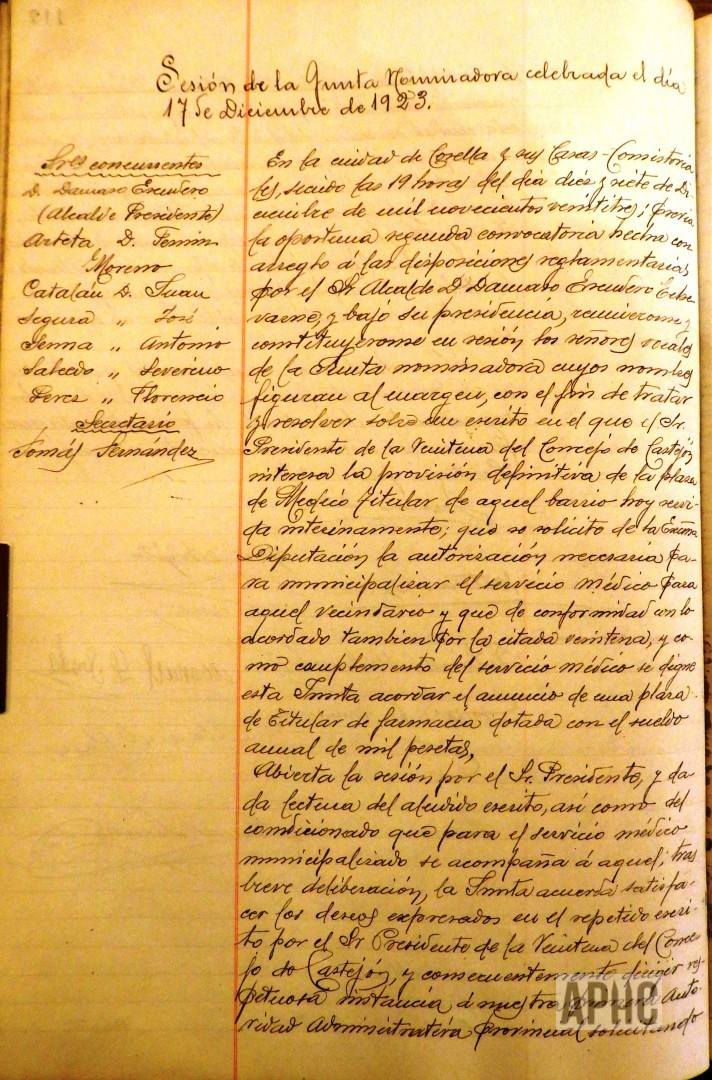 Sesión de la Junta Nominadora celebrada el día
17 de Diciembre de 1923.
Sres concurrentes
D. Damaso Escudero
(Alcalde Presidente)
Arteta D. Fermin
Moreno
Catalán D. Juan
Segura " José
Senna " Antonio
Salcedo " Severino
Perez " Florencio
Secretario
Tomás Fernández
En la ciudad de Corella y sus Casas-Consistoria
les, siendo las 19 horas del día diez y siete de Di
ciembre de mil novecientos veintitres; previa
la oportuna segunda convocatoria hecha con
arreglo á las disposiciones reglamentarias
por el Sr Alcalde D Damaso Escudero
y bajo su presidencia, reunieronse y
constituyeronse en sesión los señores vocales
de la Junta nominadora cuyos nombres
figuran al margen, con el fin de tratar
y resolver sobre un escrito en el que el Sr.
Presidente de la Veintena del Concejo de Castejón
interesa la provisión definitiva de la plaza
de Medico titular de aquel barrio hoy servi-
da interinamente; que se solicite de la Excma
Diputación la autorización necesaria pa-
ra municipalizar el servicio médico para
aquel vecindario y que de conformidad con lo
acordado tambien por la citada veintena, y co-
mo complemento del servicio médico se digne
esta Junta acordar el anuncio de una plaza
de Titular de farmacia dotada con el sueldo
anual de mil pesetas,
Abierta la sesión por el Sr. Presidente, y da
da lectura del aludido escrito, así como del
condicionado que para el servicio médico
municipalizado se acompaña á aquel; tras
breve deliberación, la Junta acuerda satisfa-
cer los deseos expresados en el repetido escri-
to por el Sr Presidente de la Veintena del Conce
jo de Castejón, y consecuentemente dirigir res-
petuosa instancia á nuestra primera Auto-
ridad Administrativa provincial solicitando
APHC